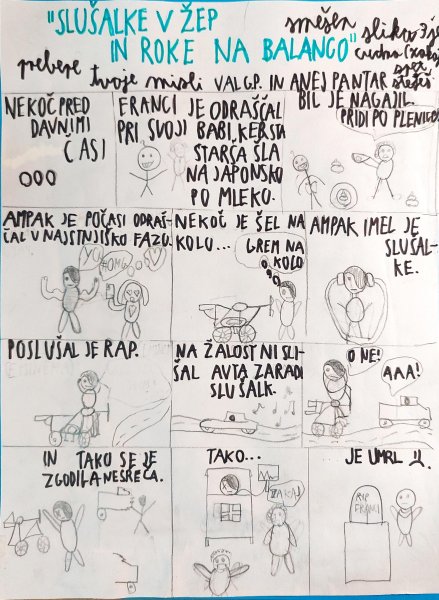 "SLUŠALKE V ŽEP
IN ROKE NA BALANCO"
smešen
preberе tvoje misli
VAL G.P. IN ANEJ PANTAR
NEKOČ PRED
DAVNIMI
ČASI
OOO
FRANCI JE ODRAŠČAL
PRI SVOJI BABI, KER STA
STARŠA ŠLA
NA JAPONSKO
PO MLEKO.
BIL JE NAGAJIL.
PRIDI PO PLENICO
AMPAK JE POČASI ODRAŠ-
ČAL V NAJSTNJIŠKO FAZO.
YO
OMG
NEKOČ JE ŠEL NA
KOLO...
GREM NA
KOLO
AMPAK IMEL JE
SLUŠAL-
KE.
POSLUŠAL JE RAP.
NA ŽALOST NI SLI-
ŠAL AVTA ZARADI
SLUŠALK.
O NE!
AAA!
IN TAKO SE JE
ZGODILA NESREČA.
TAKO...
ZAKAJ
JE UMRL
RIP
FRANCI